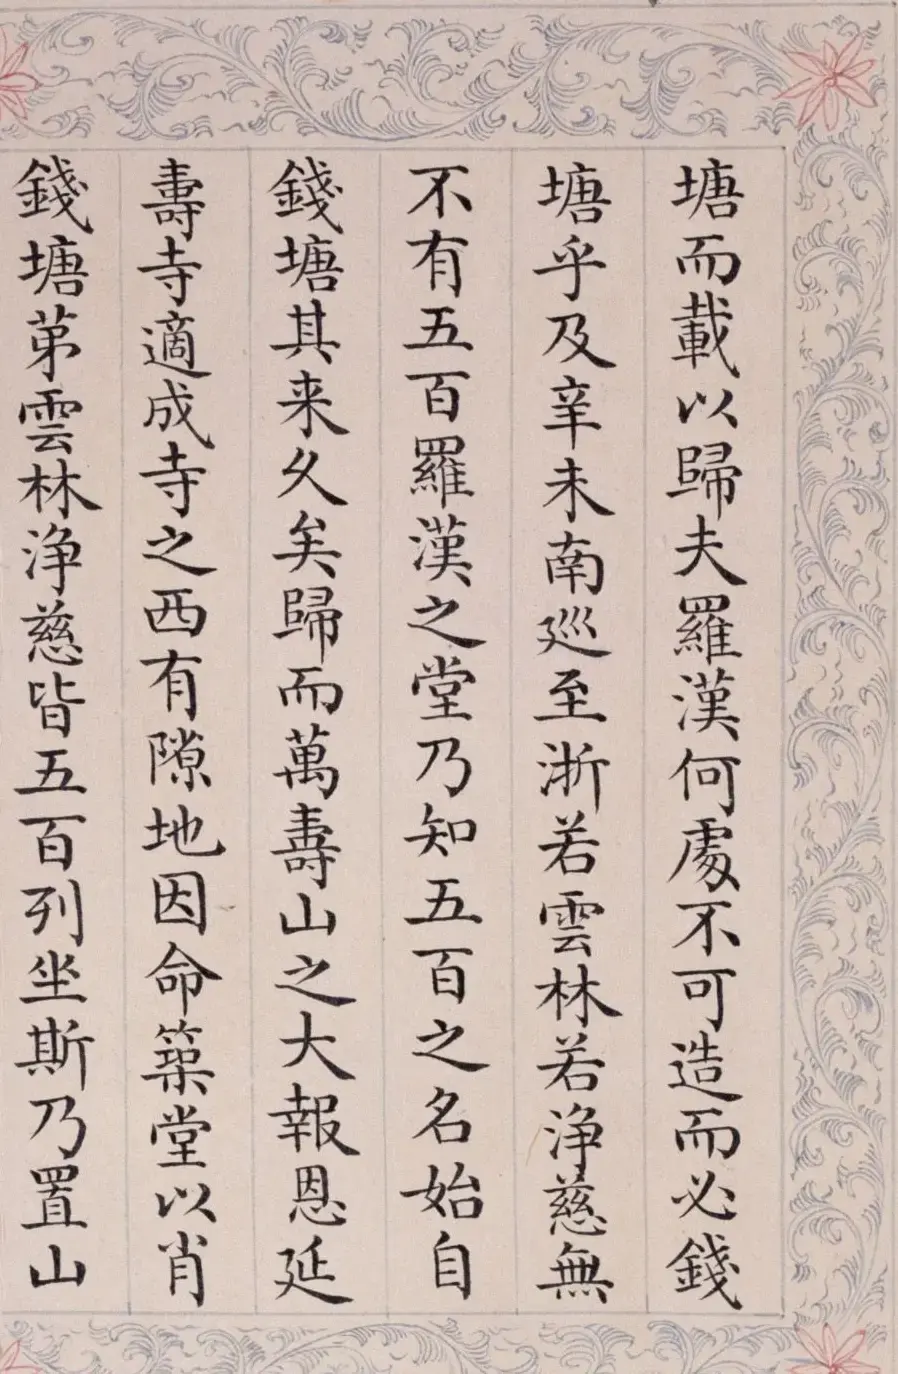 塘而載以歸夫羅漢何處不可造而必錢
塘乎及辛未南巡至浙若雲林若浄慈無
不有五百羅漢之堂乃知五百之名始自
錢塘其来久矣歸而萬壽山之大報恩延
壽寺適成寺之西有隙地因命築堂以肖
錢塘苐雲林浄慈皆五百列坐斯乃置山